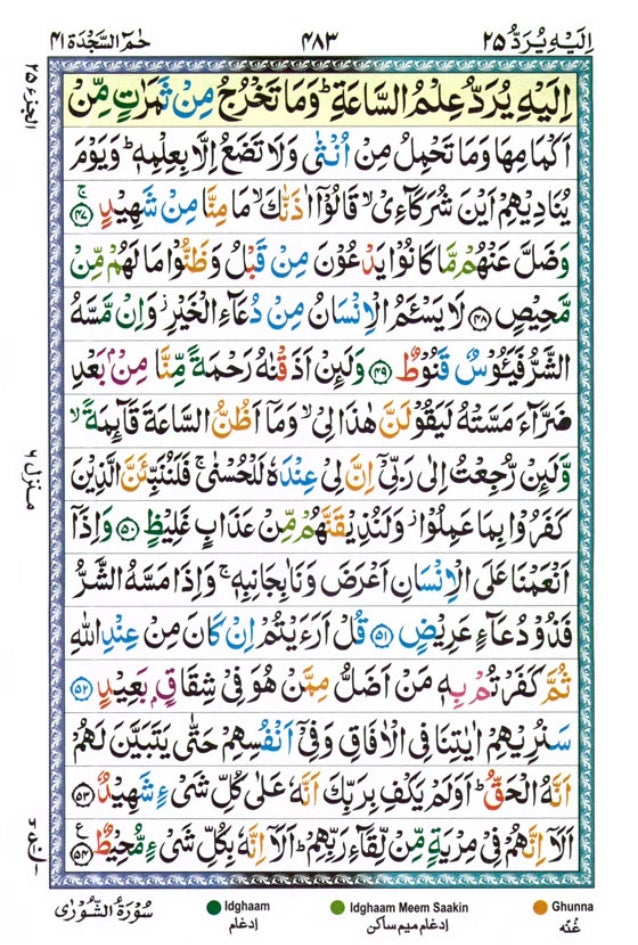 اِلَيْهِ يُرَدُّ ٢٥
٤٨٣
حٰمٓ السَّجْدَة ٤١
الجزء ٢٥
اِلَيْهِ يُرَدُّ عِلْمُ السَّاعَةِ ؕ وَمَا تَخْرُجُ مِنْ ثَمَرٰتٍ مِّنْ
اَكْمَامِهَا وَمَا تَحْمِلُ مِنْ اُنْثٰى وَلَا تَضَعُ اِلَّا بِعِلْمِهٖ ؕ وَيَوْمَ
يُنَادِيْهِمْ اَيْنَ شُرَكَآءِىْ ۙ قَالُوْۤا اٰذَنّٰكَ ۙ مَا مِنَّا مِنْ شَهِيْدٍ ۚ ﴿٤٧﴾
وَضَلَّ عَنْهُمْ مَّا كَانُوْا يَدْعُوْنَ مِنْ قَبْلُ وَظَنُّوْا مَا لَهُمْ مِّنْ
مَّحِيْصٍ ﴿٤٨﴾ لَا يَسْـَٔمُ الْاِنْسَانُ مِنْ دُعَآءِ الْخَيْرِ ۫ وَاِنْ مَّسَّهُ
الشَّرُّ فَيَـُٔوْسٌ قَنُوْطٌ ﴿٤٩﴾ وَلَئِنْ اَذَقْنٰهُ رَحْمَةً مِّنَّا مِنْۢ بَعْدِ
ضَرَّآءَ مَسَّتْهُ لَيَقُوْلَنَّ هٰذَا لِىْ ۙ وَمَاۤ اَظُنُّ السَّاعَةَ قَآئِمَةً ۙ
وَّلَئِنْ رُّجِعْتُ اِلٰى رَبِّىْۤ اِنَّ لِىْ عِنْدَهٗ لَلْحُسْنٰى ۚ فَلَنُنَبِّئَنَّ الَّذِيْنَ
كَفَرُوْا بِمَا عَمِلُوْا ۫ وَلَنُذِيْقَنَّهُمْ مِّنْ عَذَابٍ غَلِيْظٍ ﴿٥٠﴾ وَاِذَاۤ
اَنْعَمْنَا عَلَى الْاِنْسَانِ اَعْرَضَ وَنَاٰ بِجَانِبِهٖ ۚ وَاِذَا مَسَّهُ الشَّرُّ
فَذُوْ دُعَآءٍ عَرِيْضٍ ﴿٥١﴾ قُلْ اَرَءَيْتُمْ اِنْ كَانَ مِنْ عِنْدِ اللّٰهِ
ثُمَّ كَفَرْتُمْ بِهٖ مَنْ اَضَلُّ مِمَّنْ هُوَ فِىْ شِقَاقٍۭ بَعِيْدٍ ﴿٥٢﴾
سَنُرِيْهِمْ اٰيٰتِنَا فِى الْاٰفَاقِ وَفِىْۤ اَنْفُسِهِمْ حَتّٰى يَتَبَيَّنَ لَهُمْ
اَنَّهُ الْحَقُّ ؕ اَوَلَمْ يَكْفِ بِرَبِّكَ اَنَّهٗ عَلٰى كُلِّ شَىْءٍ شَهِيْدٌ ﴿٥٣﴾
اَلَاۤ اِنَّهُمْ فِىْ مِرْيَةٍ مِّنْ لِّقَآءِ رَبِّهِمْ ؕ اَلَاۤ اِنَّهٗ بِكُلِّ شَىْءٍ مُّحِيْطٌ ﴿٥٤﴾ ع
سُوْرَةُ الشُّوْرٰى
Idghaam
Idghaam Meem Saakin
Ghunna
اِدغام
اِدغام میم ساکن
غُنّه